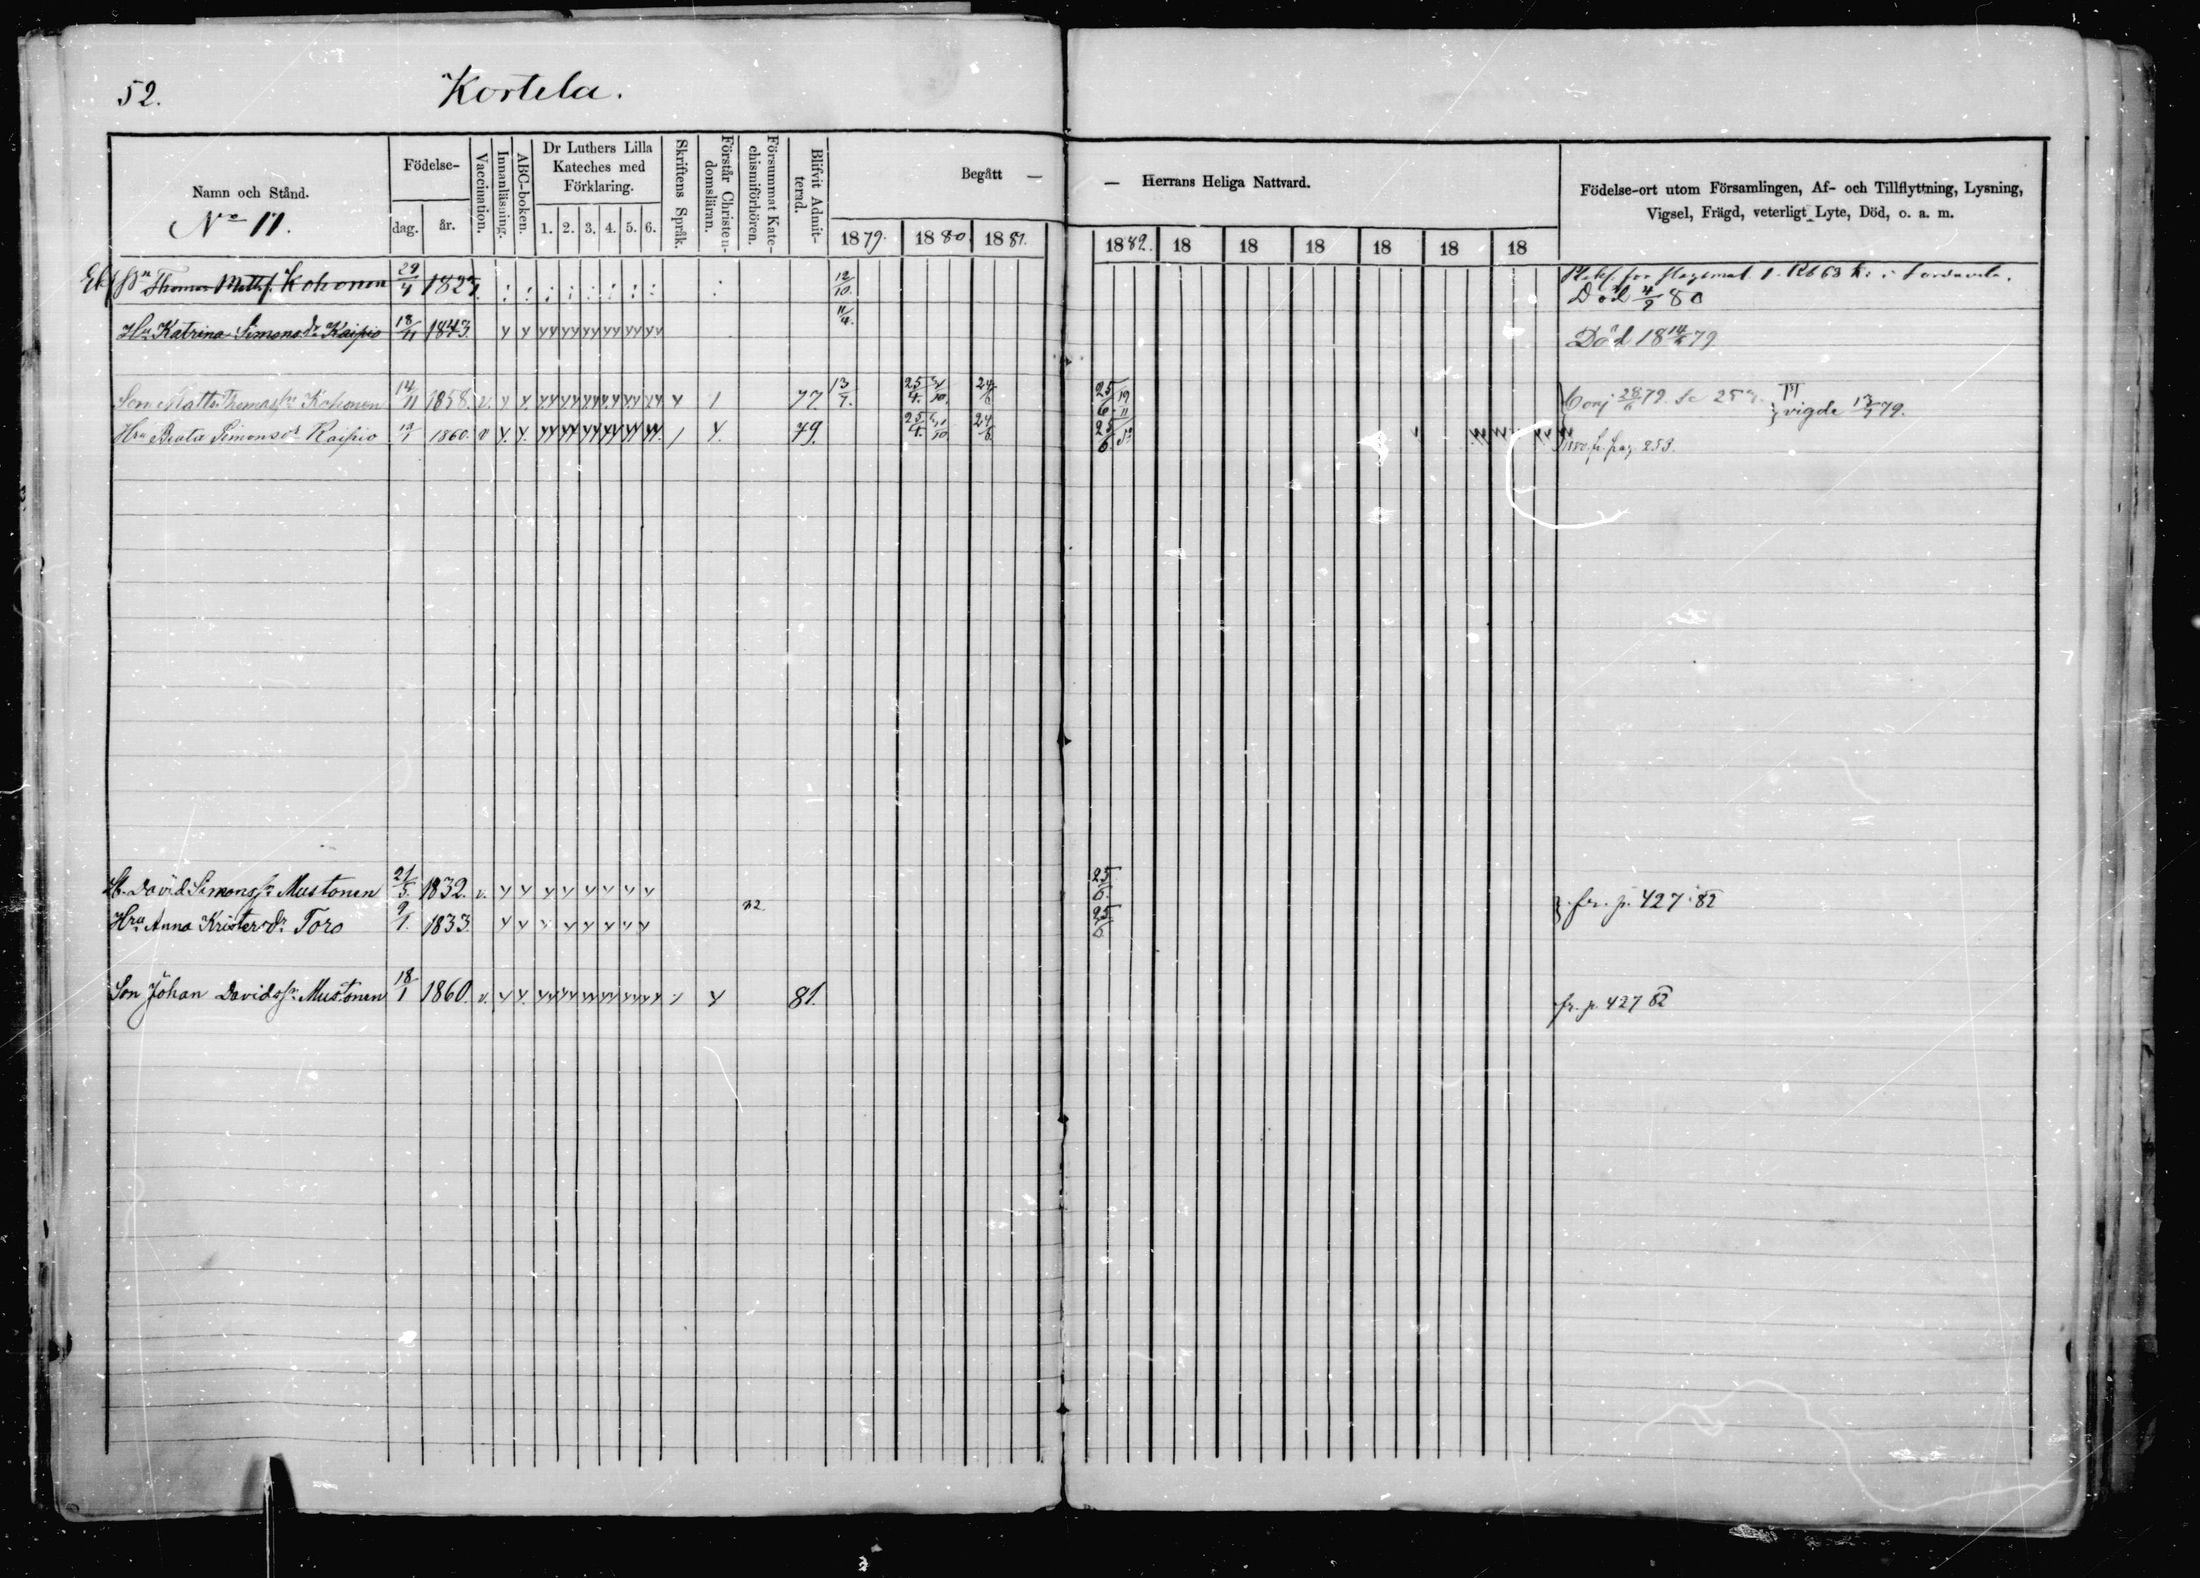 52.
Kortela.
Namn och Stånd.
No 11.
Födelse-
dag.
år.
Vaccination.
Innanläsning.
ABC-boken.
Dr Luthers Lilla
Kateches med
Förklaring.
1. 2. 3. 4. 5. 6.
Skriftens Språk.
Förstår Christen-
domsläran.
Försummat Kate-
chismiförhören.
Blifvit Admit-
terad.
Begått —
1879. 1880. 1881.
— Herrans Heliga Nattvard.
1882. 18 18 18 18 18 18
Födelse-ort utom Församlingen, Af- och Tillflyttning, Lysning,
Vigsel, Frägd, veterligt Lyte, Död, o. a. m.
Thomas Matts. Kohonen 29/4 1827. 12/10. för slagsmål
Död 4/9 80
11/4.
Hu Katrina Simonsdr Kaipio 18/11 1843. Död 18 79
Son Matts Thomassn Kohonen 14/11 1858. v. 1 77. 13/7. 25/4. 24/6 25/6 19/11 79. vigde 13/7 79.
Hru Beata Simonsdr Kaipio 1860. v 79. 25/4. 24/6 25/6 fr. pag. 253.
David Simonssn Mustonen 21/5. 1832. v. 25/6. fr. p. 427 82
Hru Anna Kristersdr Toro 9/1. 1833. 82. 25/6
Son Johan Davidssn Mustonen 18/1 1860. v. 81. fr. p. 427 82